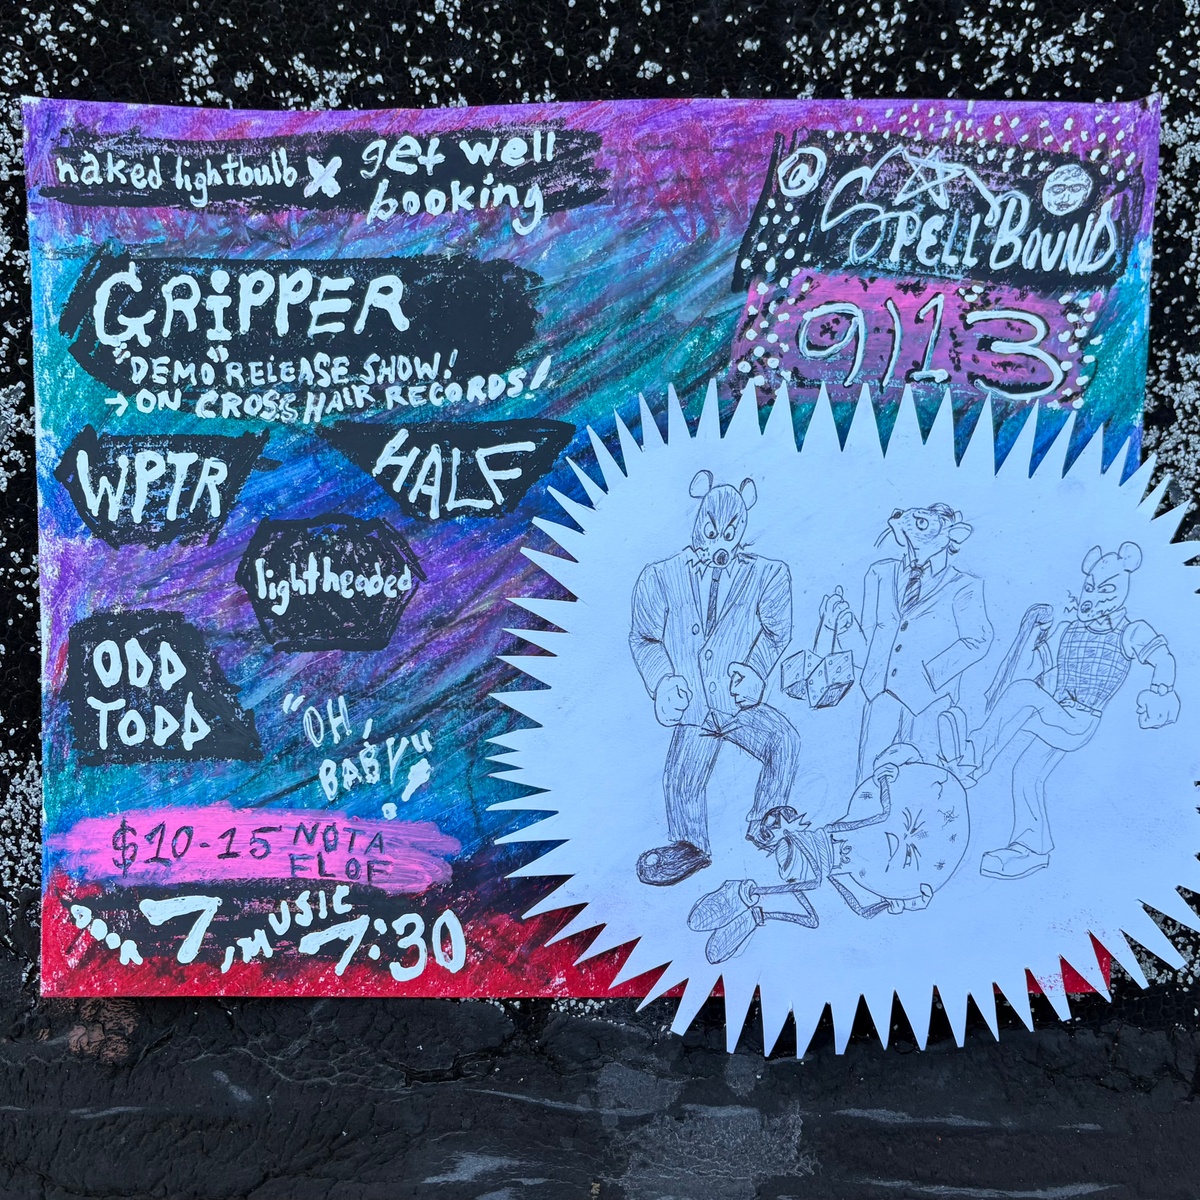 naked lightbulb x get well
booking
@ SPELLBOUND
9/13
GRiPPER
"DEMO" RELEASE SHOW!
→ ON CROSSHAIR RECORDS!
WPTR
HALF
lightheaded
ODD
TODD
"OH,
BABY"!
$10-15 NOTA
FLOF
DOOR 7, MUSIC 7:30